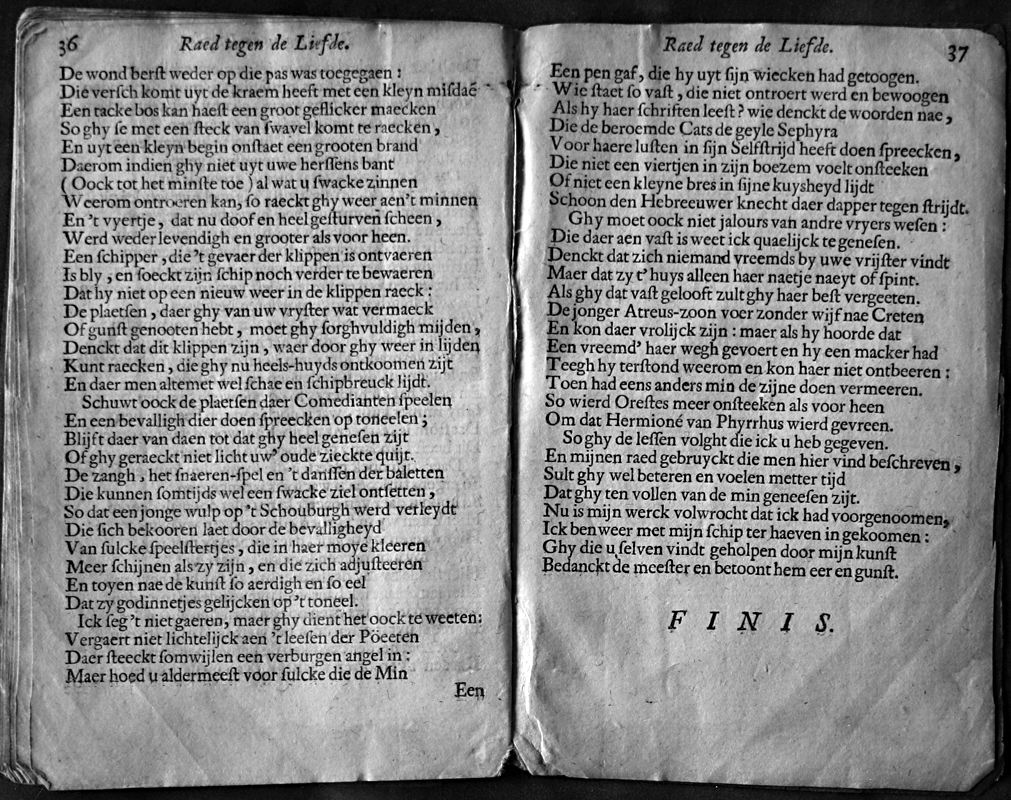 36 Raed tegen de Liefde.
De wond berſt weder op die pas was toegegaen :
Die verſch komt uyt de kraem heeft met een kleyn miſdaē
Een tacke bos kan haeſt een groot geflicker maecken
So ghy ſe met een ſteck van ſwavel komt te raecken ,
En uyt een kleyn begin onſtaet een grooten brand
Daerom indien ghy niet uyt uwe herſſens bant
( Oock tot het minſte toe ) al wat u ſwacke zinnen
Weerom ontroeren kan, ſo raeckt ghy weer aen't minnen
En 't vyertje , dat nu doof en heel geſturven ſcheen ,
Werd weder levendigh en grooter als voor heen.
Een ſchipper , die 't gevaer der klippen is ontvaeren
Is bly , en ſoeckt zijn ſchip noch verder te bewaeren
Dat hy niet op een nieuw weer in de klippen raeck :
De plaetſen , daer ghy van uw vryſter wat vermaeck
Of gunſt genooten hebt , moet ghy ſorghvuldigh mijden ,
Denckt dat dit klippen zijn , waer door ghy weer in lijden
Kunt raecken , die ghy nu heels-huyds ontkoomen zijt
En daer men altemet wel ſchae en ſchipbreuck lijdt.
Schuwt oock de plaetſen daer Comedianten ſpeelen
En een bevalligh dier doen ſpreecken op toneelen ;
Blijft daer van daen tot dat ghy heel geneſen zijt
Of ghy geraeckt niet licht uw' oude zieckte quijt.
De zangh , het ſnaeren-ſpel en 't danſſen der baletten
Die kunnen ſomtijds wel een ſwacke ziel ontſetten ,
So dat een jonge wulp op 't Schouburgh werd verleydt
Die ſich bekooren laet door de bevalligheyd
Van ſulcke ſpeelſtertjes , die in haer moye kleeren
Meer ſchijnen als zy zijn , en die zich adjuſteeren
En toyen nae de kunſt ſo aerdigh en ſo eel
Dat zy godinnetjes gelijcken op 't toneel.
Ick ſeg 't niet gaeren, maer ghy dient het oock te weeten:
Vergaert niet lichtelijck aen 't leeſen der Pöeeten
Daer ſteeckt ſomwijlen een verburgen angel in :
Maer hoed u aldermeeſt voor ſulcke die de Min
Een
Raed tegen de Liefde. 37
Een pen gaf, die hy uyt ſijn wiecken had getoogen.
Wie ſtaet ſo vaſt , die niet ontroert werd en bewoogen
Als hy haer ſchriften leeſt ? wie denckt de woorden nae ,
Die de beroemde Cats de geyle Sephyra
Voor haere luſten in ſijn Selfſtrijd heeft doen ſpreecken ,
Die niet een viertjen in zijn boezem voelt onſteeken
Of niet een kleyne bres in ſijne kuysheyd lijdt
Schoon den Hebreeuwer knecht daer dapper tegen ſtrijdt.
Ghy moet oock niet jalours van andre vryers weſen :
Die daer aen vaſt is weet ick quaelijck te geneſen.
Denckt dat zich niemand vreemds by uwe vrijſter vindt
Maer dat zy t' huys alleen haer naetje naeyt of ſpint.
Als ghy dat vaſt gelooft zult ghy haer beſt vergeeten.
De jonger Atreus-zoon voer zonder wijf nae Creten
En kon daer vrolijck zijn : maer als hy hoorde dat
Een vreemd' haer wegh gevoert en hy een macker had
Teegh hy terſtond weerom en kon haer niet ontbeeren :
Toen had eens anders min de zijne doen vermeeren.
So wierd Oreſtes meer onſteeken als voor heen
Om dat Hermioné van Phyrrhus wierd gevreen.
So ghy de leſſen volght die ick u heb gegeven.
En mijnen raed gebruyckt die men hier vind beſchreven ,
Sult ghy wel beteren en voelen metter tijd
Dat ghy ten vollen van de min geneeſen zijt.
Nu is mijn werck volwrocht dat ick had voorgenoomen,
Ick ben weer met mijn ſchip ter haeven in gekoomen :
Ghy die u ſelven vindt geholpen door mijn kunſt
Bedanckt de meeſter en betoont hem eer en gunſt.
F I N I S.